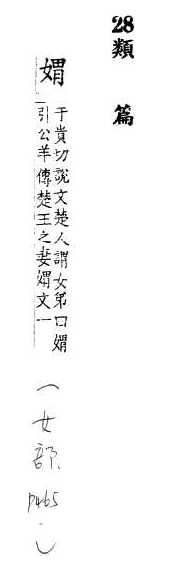 28 類篇
媦 于貴切說文楚人謂女弟曰媦
引公羊傳楚王之妻媦文一
(女部 p465.)